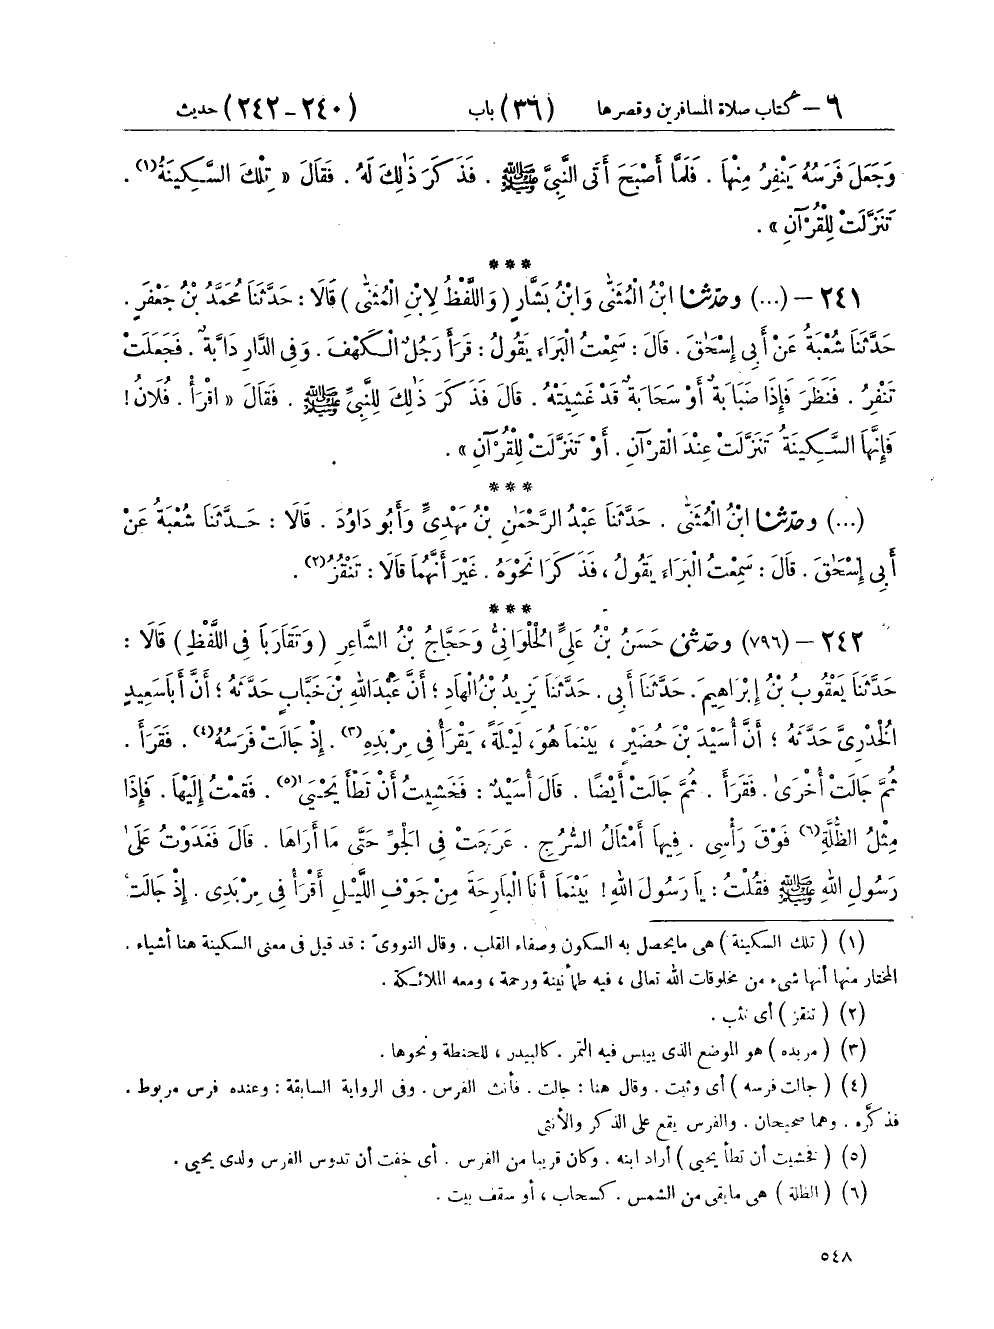 ٦ – كتاب صلاة المسافرين وقصرها (٣٦) باب (٢٤٠-٢٤٢) حديث
وَجَعَلَ فَرَسُهُ يَنْفِرُ مِنْهَا . فَلَمَّا أَصْبَحَ أَتَى النَّبِيَّ ﷺ . فَذَكَرَ ذَٰلِكَ لَهُ . فَقَالَ « تِلْكَ السَّكِينَةُ(١) .
تَنَزَّلَتْ لِلْقُرْآنِ » .
***
٢٤١ – (...) وحدّثنا ابْنُ الْمُثَنَّىٰ وَابْنُ بَشَّارٍ (وَاللَّفْظُ لِابْنِ الْمُثَنَّىٰ) قَالَا : حَدَّثَنَا مُحَمَّدُ بْنُ جَعْفَرٍ .
حَدَّثَنَا شُعْبَةُ عَنْ أَبِي إِسْحَٰقَ . قَالَ : سَمِعْتُ الْبَرَاءَ يَقُولُ : قَرَأَ رَجُلٌ الْكَهْفَ . وَفِي الدَّارِ دَابَّةٌ . فَجَعَلَتْ
تَنْفِرُ . فَنَظَرَ فَإِذَا ضَبَابَةٌ أَوْ سَحَابَةٌ قَدْ غَشِيَتْهُ . قَالَ فَذَكَرَ ذَٰلِكَ لِلنَّبِيِّ ﷺ . فَقَالَ « اقْرَأْ . فُلَانُ !
فَإِنَّهَا السَّكِينَةُ تَنَزَّلَتْ عِنْدَ الْقُرْآنِ . أَوْ تَنَزَّلَتْ لِلْقُرْآنِ » .
***
(...) وحدّثنا ابْنُ الْمُثَنَّىٰ . حَدَّثَنَا عَبْدُ الرَّحْمَٰنِ بْنُ مَهْدِيٍّ وَأَبُو دَاوُدَ . قَالَا : حَدَّثَنَا شُعْبَةُ عَنْ
أَبِي إِسْحَٰقَ . قَالَ : سَمِعْتُ الْبَرَاءَ يَقُولُ ، فَذَكَرَا نَحْوَهُ . غَيْرَ أَنَّهُمَا قَالَا : تَنْقُزُ(٢) .
***
٢٤٢ – (٧٩٦) وحدّثني حَسَنُ بْنُ عَلِيٍّ الْحُلْوَانِيُّ وَحَجَّاجُ بْنُ الشَّاعِرِ (وَتَقَارَبَا فِي اللَّفْظِ) قَالَا :
حَدَّثَنَا يَعْقُوبُ بْنُ إِبْرَاهِيمَ . حَدَّثَنَا أَبِي . حَدَّثَنَا يَزِيدُ بْنُ الْهَادِ ؛ أَنَّ عَبْدَ اللهِ بْنَ خَبَّابٍ حَدَّثَهُ ؛ أَنَّ أَبَا سَعِيدٍ
الْخُدْرِيَّ حَدَّثَهُ ؛ أَنَّ أُسَيْدَ بْنَ حُضَيْرٍ ، بَيْنَمَا هُوَ، لَيْلَةً، يَقْرَأُ فِي مِرْبَدِهِ(٣) . إِذْ جَالَتْ فَرَسُهُ(٤) . فَقَرَأَ .
ثُمَّ جَالَتْ أُخْرَىٰ . فَقَرَأَ . ثُمَّ جَالَتْ أَيْضًا . قَالَ أُسَيْدٌ : فَخَشِيتُ أَنْ تَطَأَ يَحْيَىٰ(٥) . فَقُمْتُ إِلَيْهَا . فَإِذَا
مِثْلُ الظُّلَّةِ(٦) فَوْقَ رَأْسِي . فِيهَا أَمْثَالُ السُّرُجِ . عَرَجَتْ فِي الْجَوِّ حَتَّى مَا أَرَاهَا . قَالَ فَغَدَوْتُ عَلَىٰ
رَسُولِ اللهِ ﷺ فَقُلْتُ : يَا رَسُولَ اللهِ ! بَيْنَمَا أَنَا الْبَارِحَةَ مِنْ جَوْفِ اللَّيْلِ أَقْرَأُ فِي مِرْبَدِي . إِذْ جَالَتْ
(١) (تلك السكينة) هي مايحصل به السكون وصفاء القلب . وقال النووىّ : قد قيل فى معنى السكينة هنا أشياء .
المختار منها أنها شىء من مخلوقات الله تعالى ، فيه طمأنينة ورحمة ، ومعه الملائكة .
(٢) (تنقز) أى تثب .
(٣) (مربده) هو الموضع الذى ييبس فيه التمر . كالبيدر ، للحنطة ونحوها .
(٤) (جالت فرسه) أى وثبت . وقال هنا : جالت . فأنث الفرس . وفى الرواية السابقة : وعنده فرس مربوط .
فذكَّره . وهما صحيحان . والفرس يقع على الذكر والأنثى
(٥) (فخشيت أن تطأ يحيى) أراد ابنه . وكان قريبا من الفرس . أى خفت أن تدوس الفرس ولدى يحيى .
(٦) (الظلة) هى مايقى من الشمس . كسحاب ، أو سقف بيت .
٥٤٨